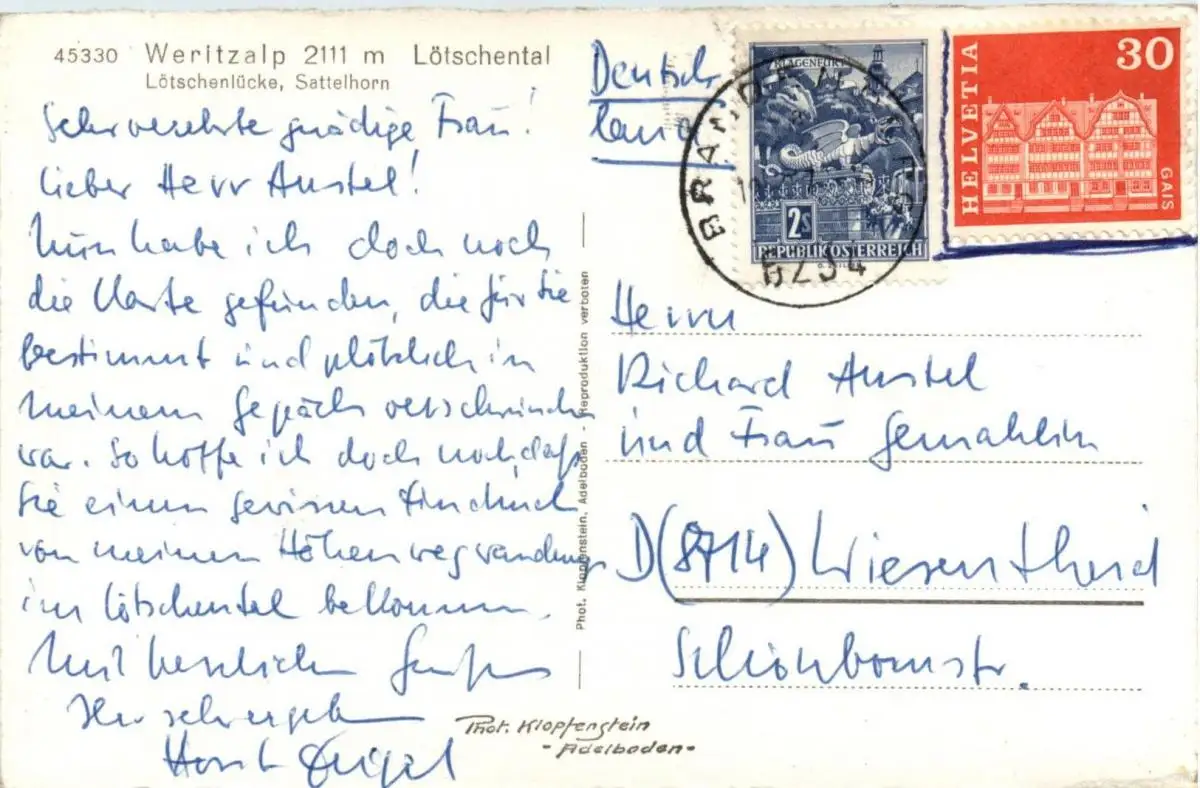 45330 Weritzalp 2111 m Lötschental
Lötschenlücke, Sattelhorn
Sehr verehrte gnädige Frau!
Lieber Herr Anstel!
Nun habe ich doch noch
die Karte gefunden, die für Sie
bestimmt und plötzlich in
meinem Gepäck verschwunden
war. So hoffe ich doch noch, daß
Sie einen gewissen Eindruck
von meinen Höhenwegwanderungen
im Lötschental bekommen.
Mit herzlichen Grüßen
Ihr sehr ergebener
Horst
Phot. Klopfenstein
- Adelboden -
Phot. Klopfenstein, Adelboden - Reproduktion verboten
Deutsch-
land
KLAGENFURT
2S
REPUBLIK ÖSTERREICH
6294
HELVETIA
30
GAIS
Herrn
Richard Anstel
und Frau Gemahlin
D(8714) Wiesentheid
Schönbornstr.